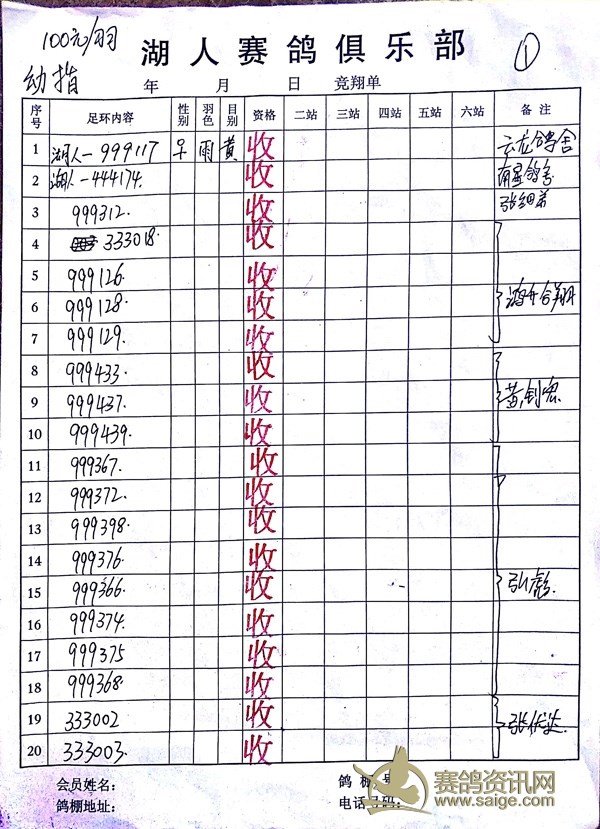 100元/羽
湖人赛鸽俱乐部
①
幼指
年 月 日 竞翔单
序号 足环内容 性别 羽色 目别 资格 二站 三站 四站 五站 六站 备注
1 湖人-999117 雨 黄 收 云龙鸽舍
2 湖人-444174. 收
3 999312. 收
4 333018. 收
5 999126. 收
6 999128. 收 合翔
7 999129. 收
8 999433. 收
9 999437. 收 黄创宏
10 999439. 收
11 999367. 收
12 999372. 收
13 999398. 收
14 999376. 收
15 999366. 收 张彪.
16 999374. 收
17 999375 收
18 999368. 收
19 333002 收 张
20 333003. 收
会员姓名: 鸽棚 号
鸽棚地址: 电话号码:
赛鸽资讯网
www.saige.com